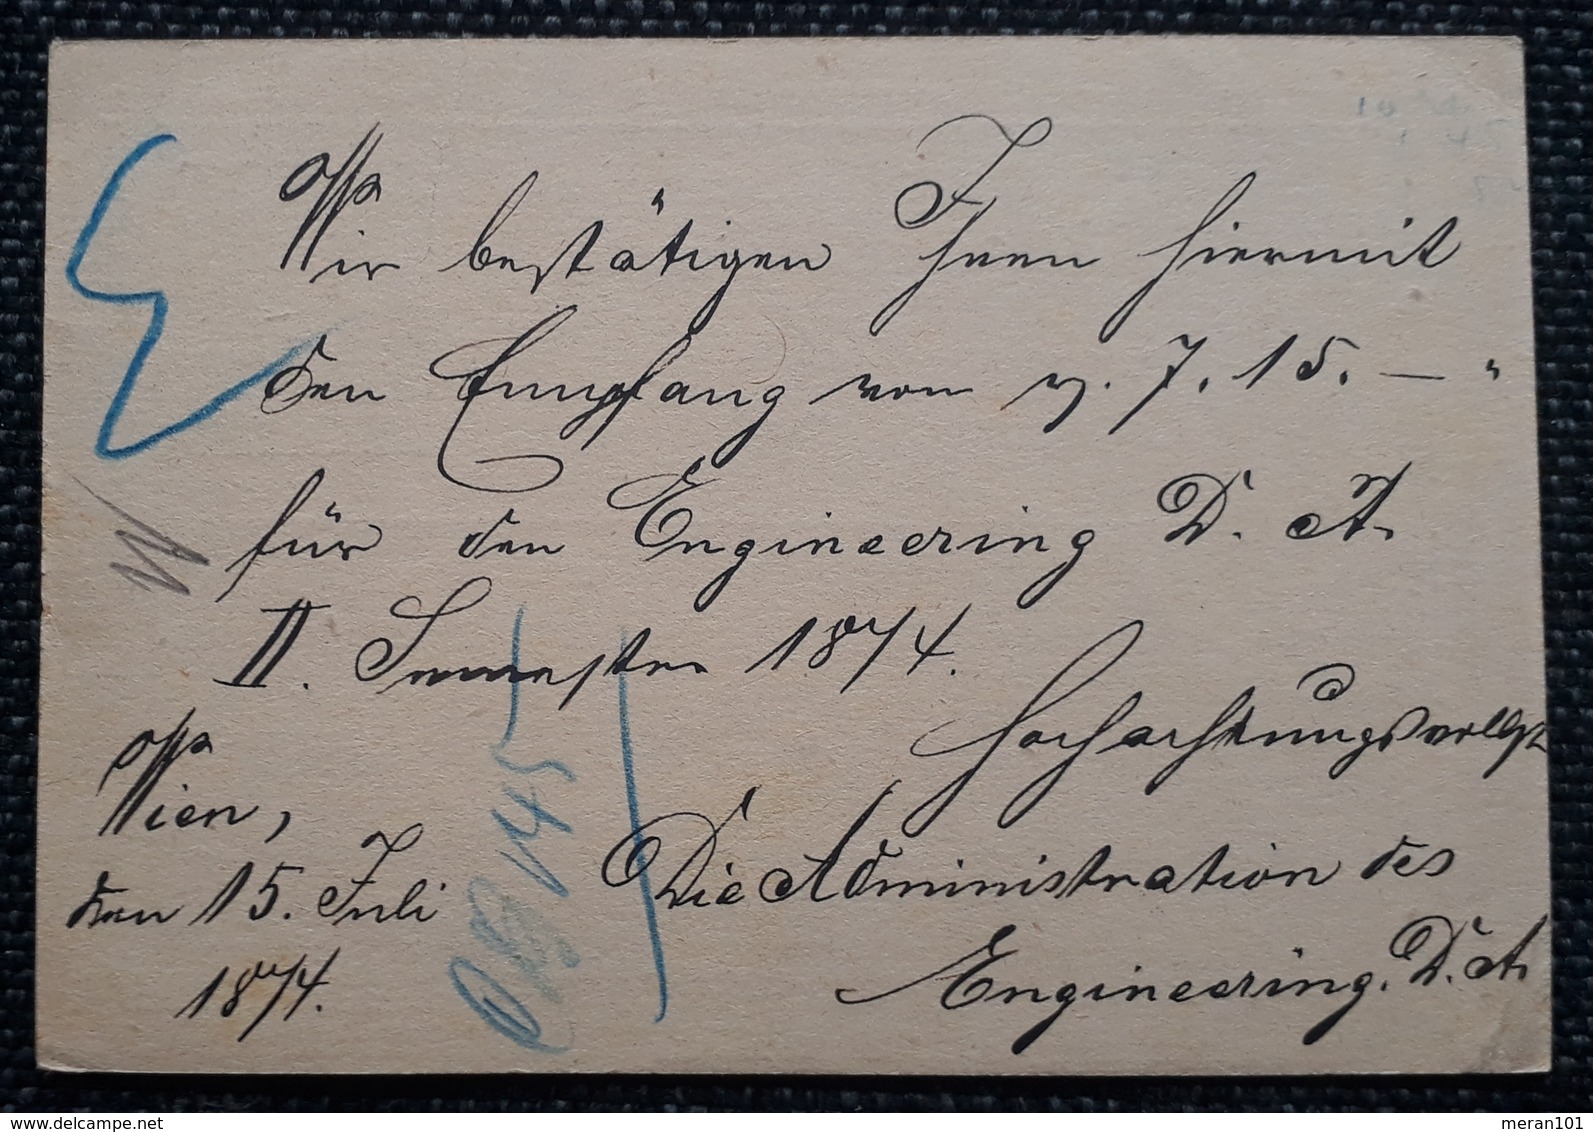 Wir bestätigen Ihnen hiermit
den Empfang von 7.15. — "
für den Engineering D. A.
II. Semester 1874.
Hochachtungsvollst
Wien,
den 15. Juli
1874.
Die Administration des
Engineering. D. A.
145
delcampe.net
meran101